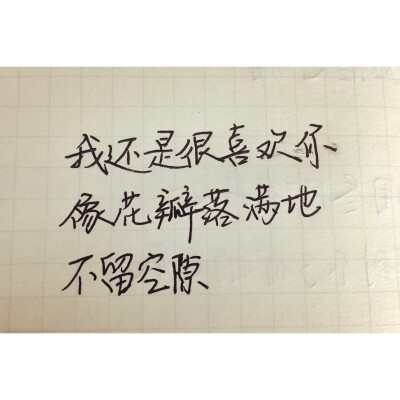 我还是很喜欢你
像花瓣落满地
不留空隙